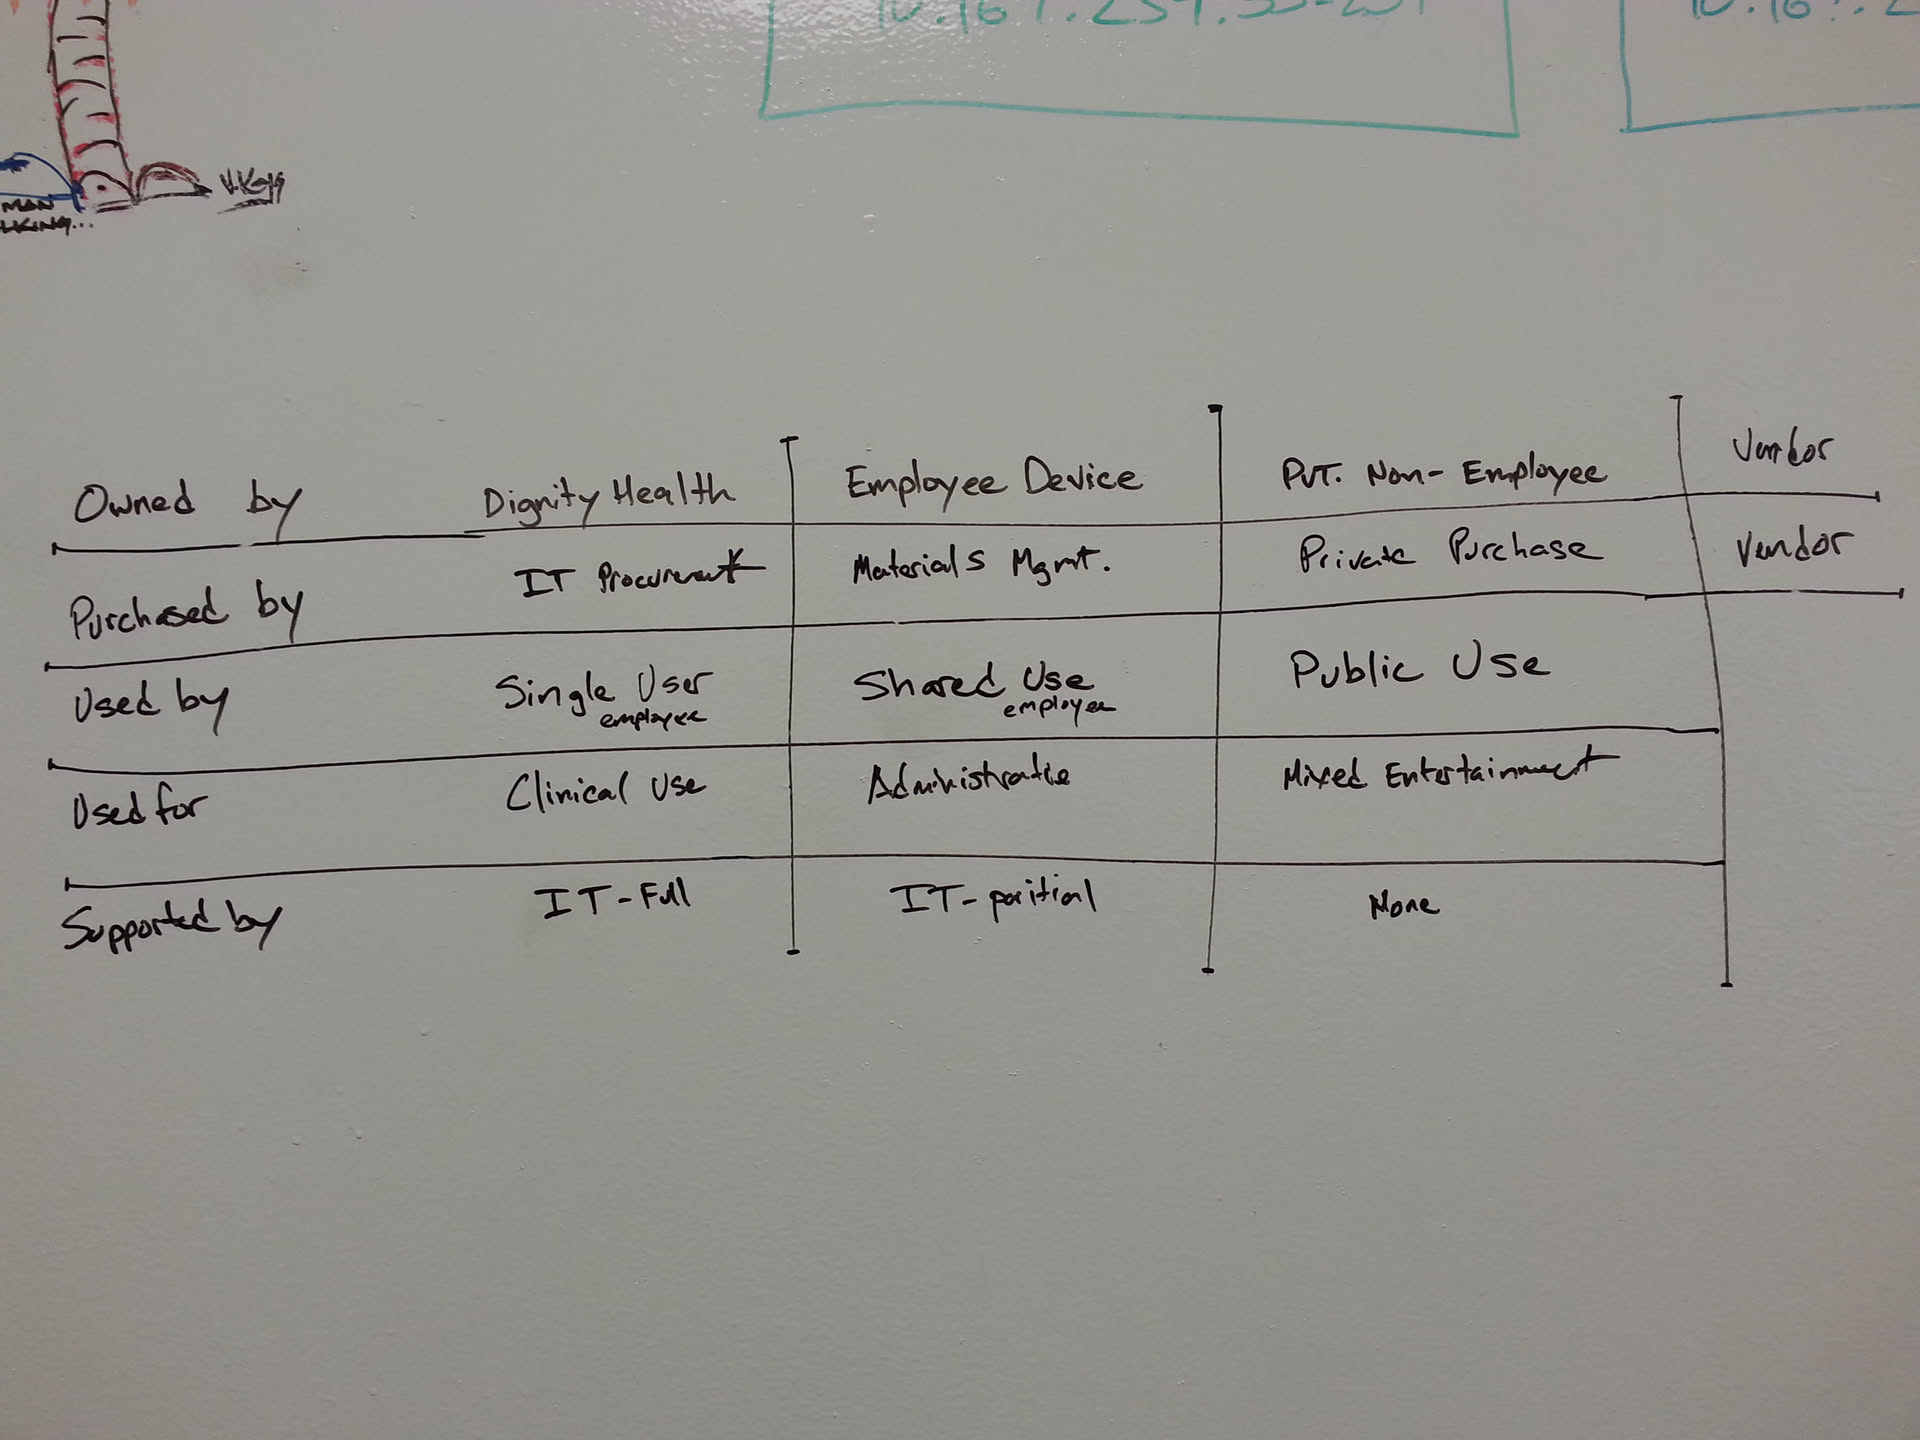 MAN
V.Keys
Owned by Dignity Health Employee Device PVT. Non-Employee Vendor
Purchased by IT Procurement Materials Mgmt. Private Purchase Vendor
Used by Single User Shared Use Public Use
employee employee
Used for Clinical Use Administrative Mixed Entertainment
Supported by IT-Full IT-paritial None